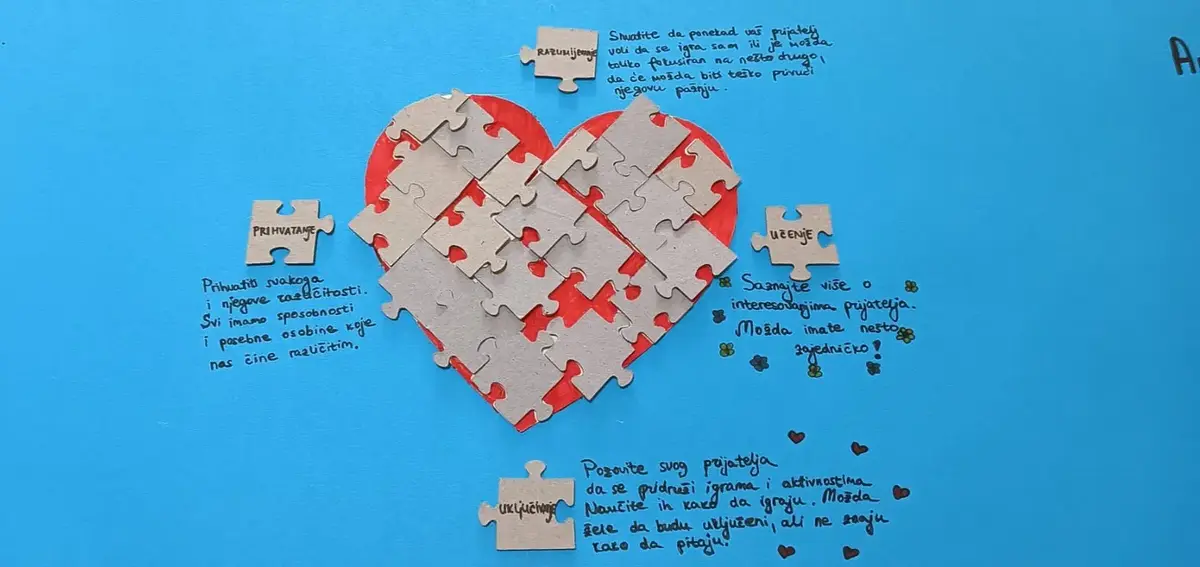 RAZUMIJEVANJE
Shvatite da ponekad vaš prijatelj
voli da se igra sam ili je možda
toliko fokusiran na nešto drugo,
da će možda biti teško privući
njegovu pažnju.
PRIHVATANJE
Prihvatiti svakoga
i njegove različitosti.
Svi imamo sposobnosti
i posebne osobine koje
nas čine različitim.
UČENJE
Saznajte više o
interesovanjima prijatelja.
Možda imate nešto
zajedničko!
UKLJUČIVANJE
Pozovite svog prijatelja
da se pridruži igrama i aktivnostima
Naučite ih kako da igraju. Možda
žele da budu uključeni, ali ne znaju
kako da pitaju.